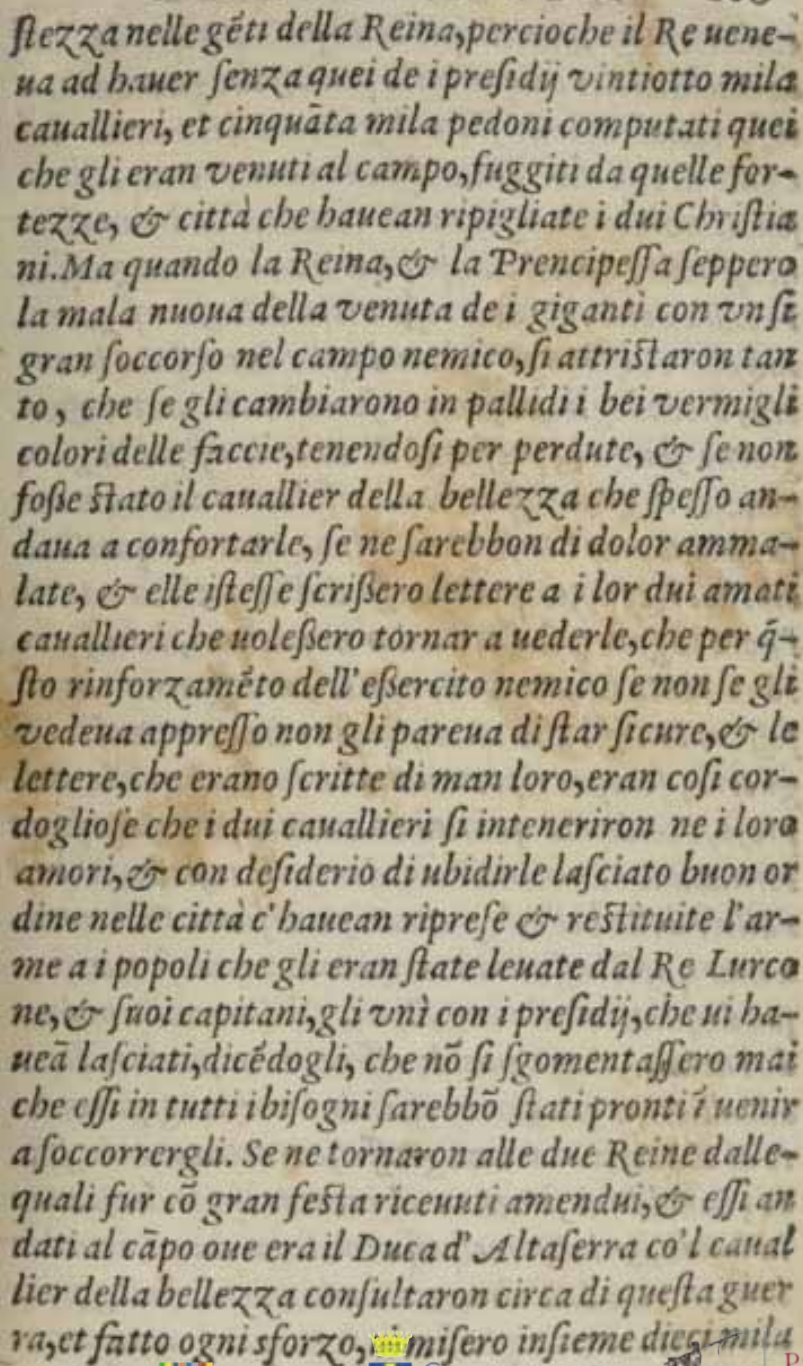 ſtezza nelle gẽti della Reina,percioche il Re uene-
ua ad hauer ſenza quei de i preſidij vintiotto mila
cauallieri, et cinquãta mila pedoni computati quei
che gli eran venuti al campo,fuggiti da quelle for-
tezze, & città che hauean ripigliate i dui Chriſtia
ni.Ma quando la Reina,& la Prencipeſſa ſeppero
la mala nuoua della venuta de i giganti con vn ſi
gran ſoccorſo nel campo nemico,ſi attriſtaron tan
to, che ſe gli cambiarono in pallidi i bei vermigli
colori delle faccie,tenendoſi per perdute, & ſe non
foße ſtato il cauallier della bellezza che ſpeſſo an-
daua a confortarle, ſe ne ſarebbon di dolor amma-
late, & elle iſteſſe ſcrißero lettere a i lor dui amati
cauallieri che uoleßero tornar a uederle,che per q̃-
ſto rinforzamẽto dell'eßercito nemico ſe non ſe gli
vedeua appreſſo non gli pareua di ſtar ſicure,& le
lettere,che erano ſcritte di man loro,eran coſi cor-
doglioſe che i dui cauallieri ſi inteneriron ne i loro
amori,& con deſiderio di ubidirle laſciato buon or
dine nelle città c'hauean ripreſe & reſtituite l'ar-
me a i popoli che gli eran ſtate leuate dal Re Lurco
ne,& ſuoi capitani,gli vnì con i preſidij,che ui ha-
ueã laſciati,dicẽdogli, che nõ ſi ſgomentaſſero mai
che eſſi in tutti i biſogni ſarebbõ ſtati pronti ĩ uenir
a ſoccorrergli. Se ne tornaron alle due Reine dalle-
quali fur cõ gran feſta riceuuti amendui,& eſſi an
dati al cãpo oue era il Duca d'Altaſerra co'l caual
lier della bellezza conſultaron circa di queſta guer
ra,et fatto ogni sforzo, miſero inſieme dieci mila